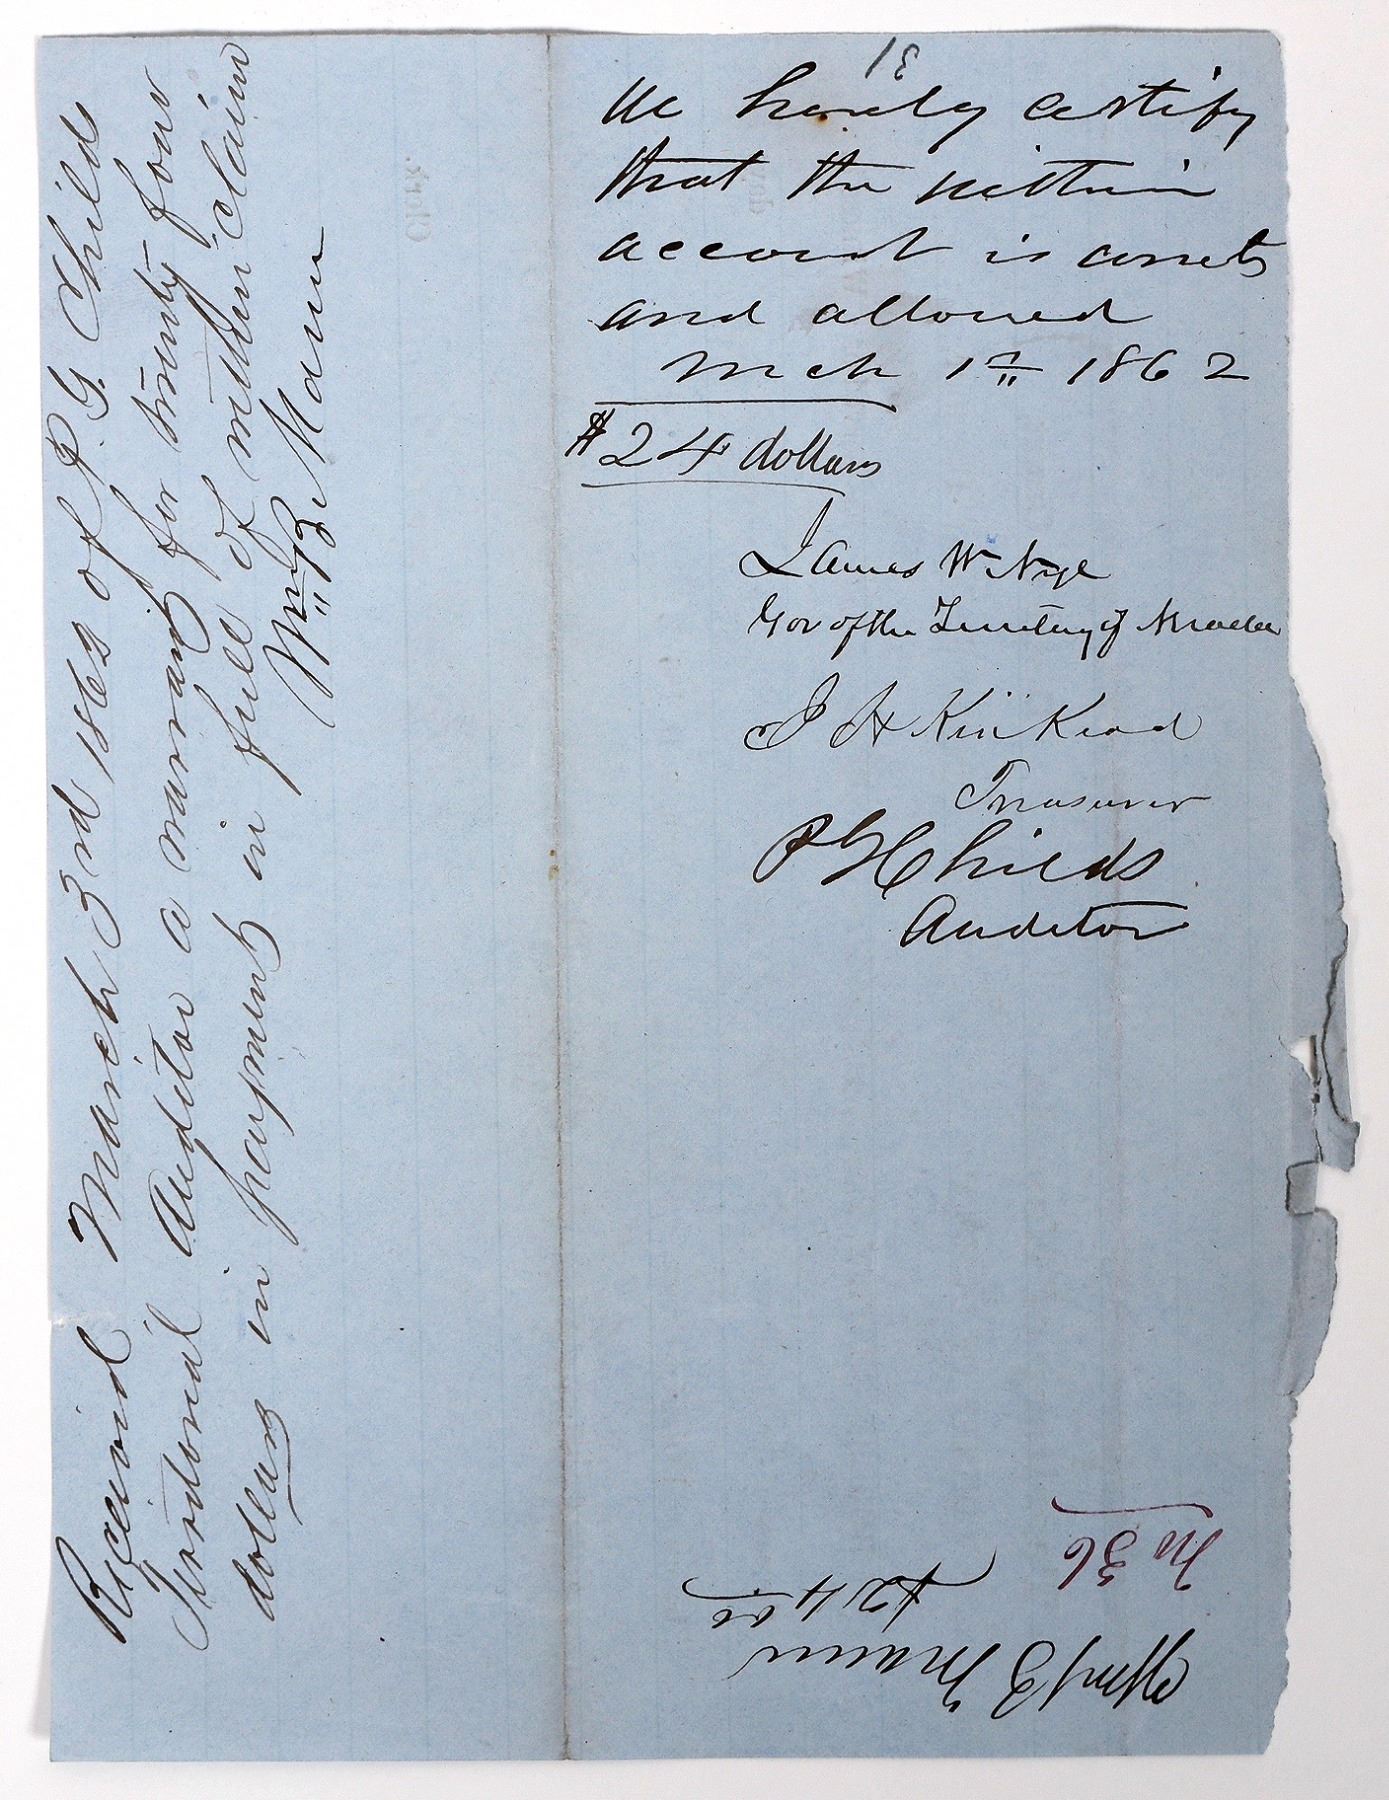 We hereby certify
that the within
account is correct
and allowed
Mch 1st 1862
$24 dollars
James W. Nye
Gov of the Territory of Nevada
J H Kinkead
Treasurer
P G Childs
Auditor
Received March 3rd 1862 of P. G. Childs
Territorial Auditor a warrant for twenty four
dollars in payment in full of within claim
Wm B Mann
No 36
$24 00
Wm B Mann